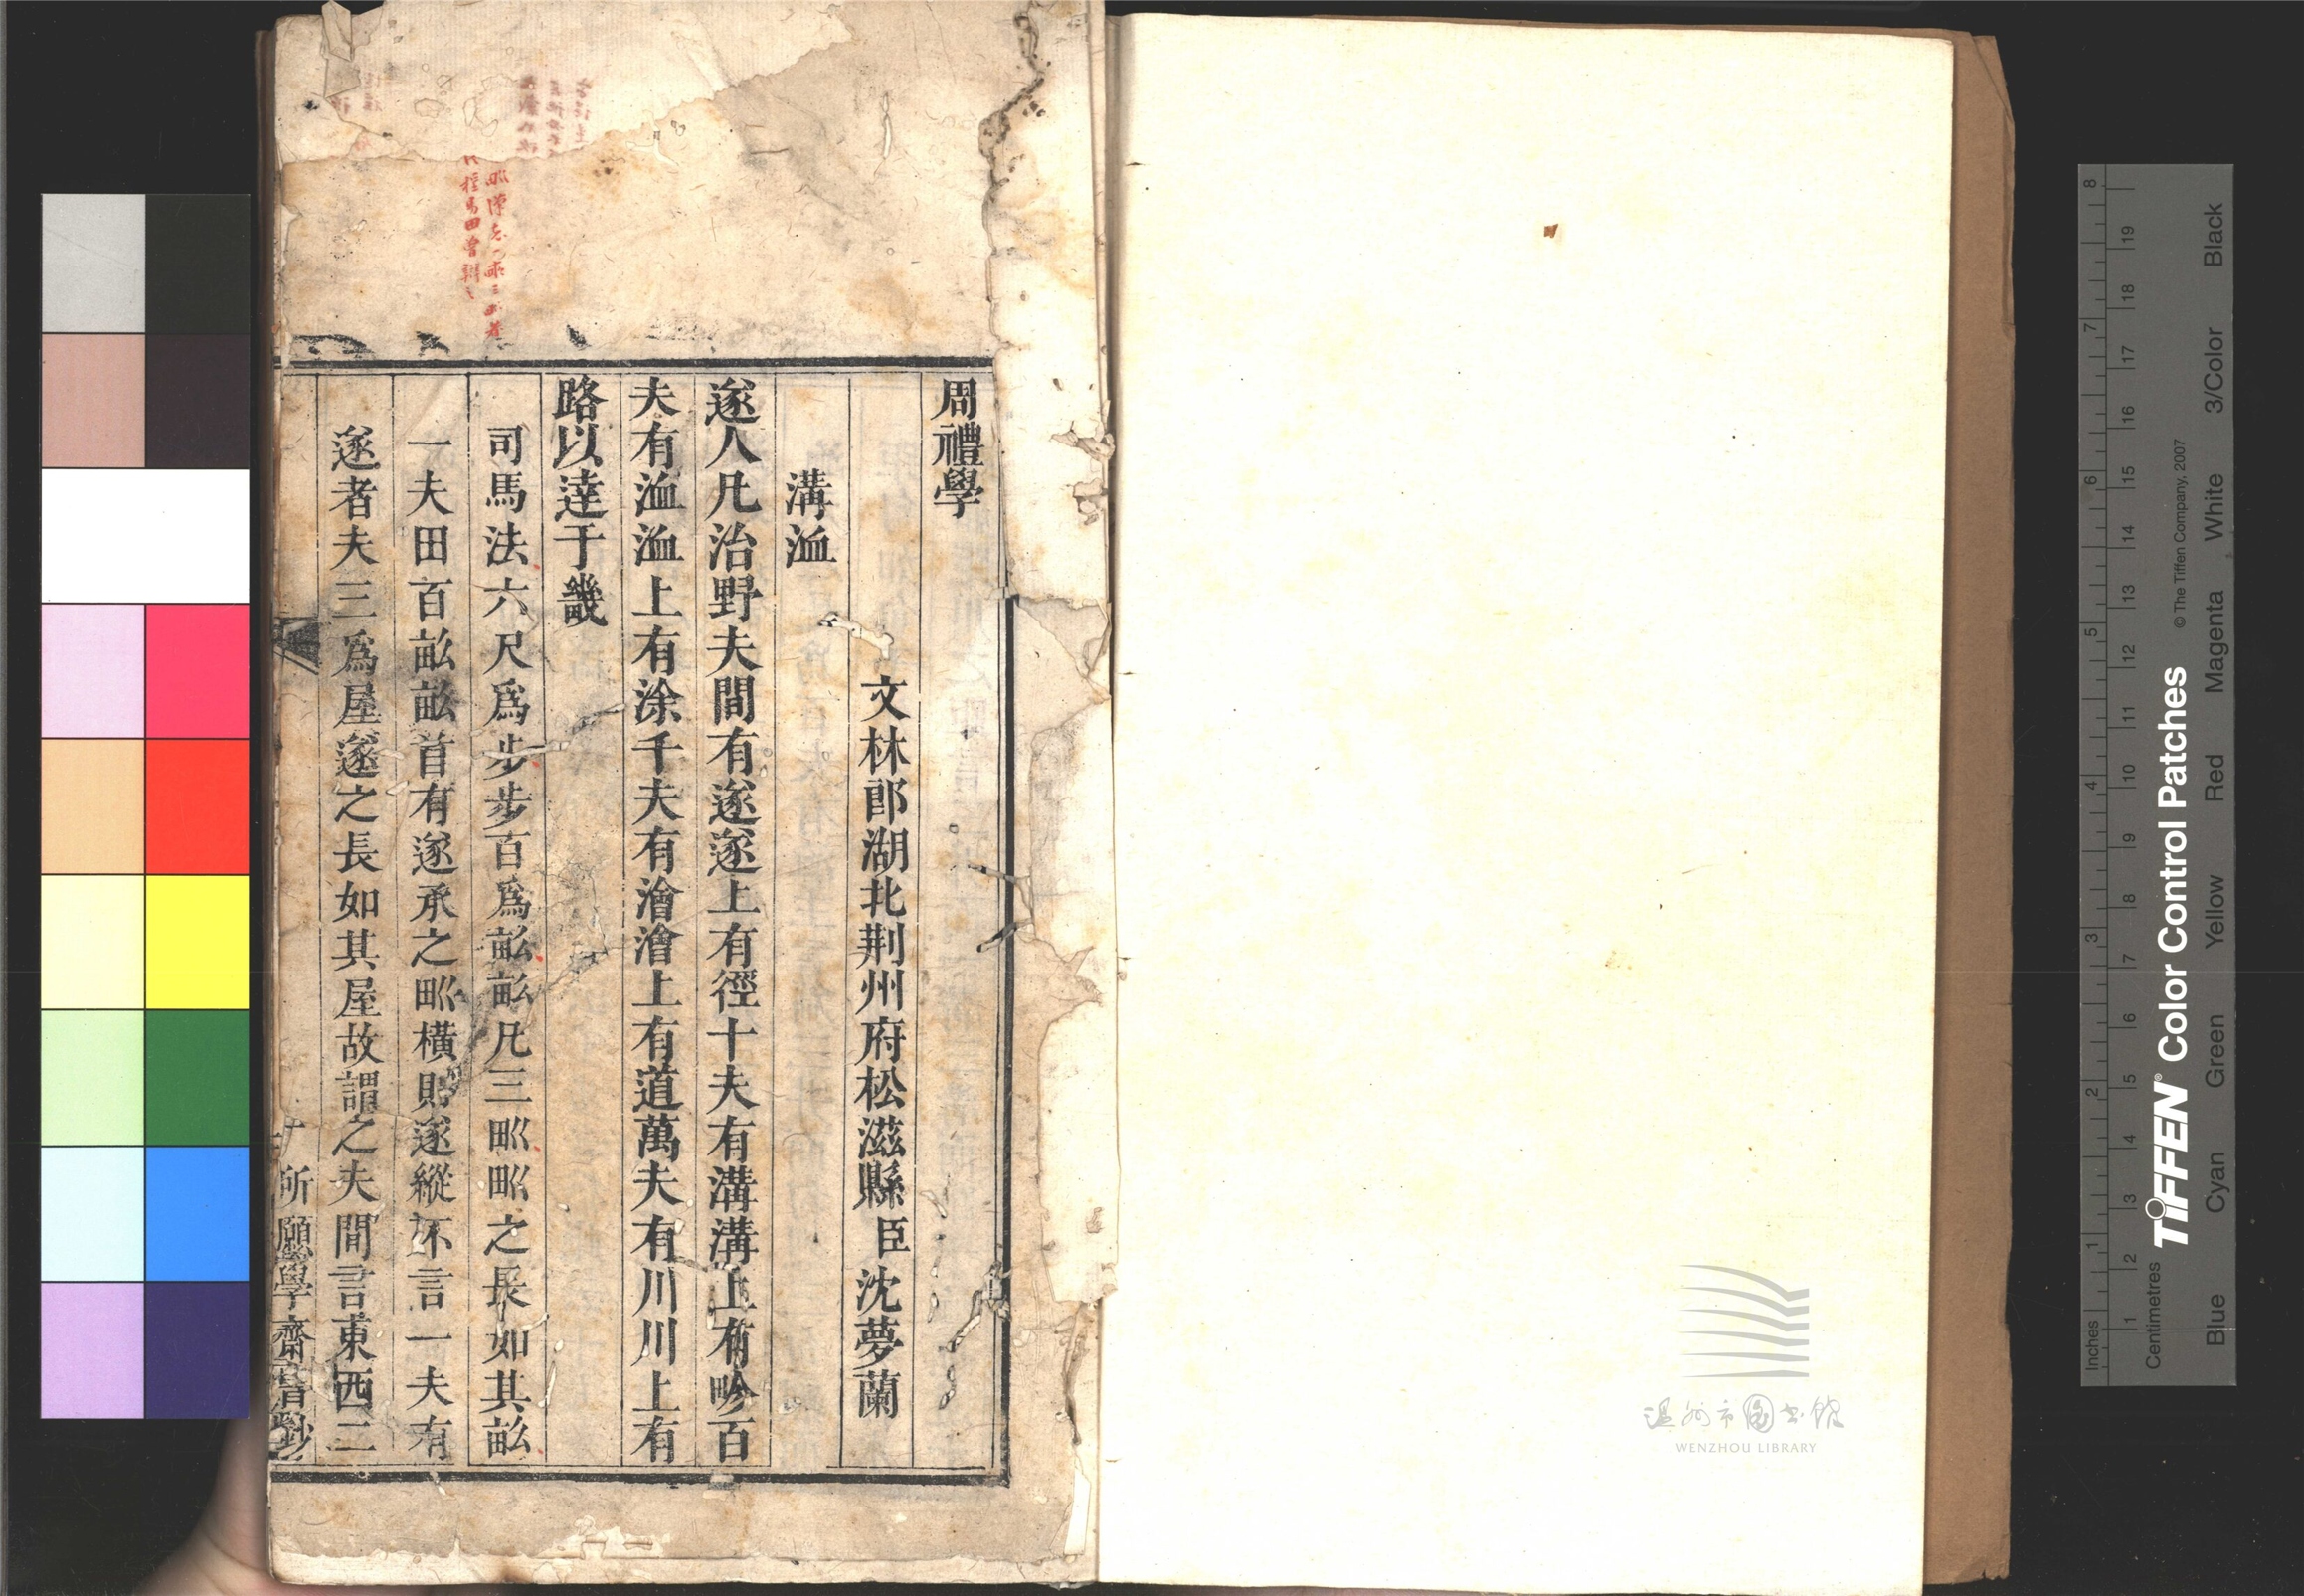 周禮學
文林郎湖北荆州府松滋縣臣沈夢蘭
溝洫
遂人凡治野夫間有遂遂上有徑十夫有溝溝上有畛百
夫有洫洫上有涂千夫有澮澮上有道萬夫有川川上有
路以達于畿
司馬法六尺爲步步百爲畝畝凡三甽甽之長如其畝
一夫田百畝畝首有遂承之甽橫則遂縱不言一夫有
遂者夫三爲屋遂之長如其屋故謂之夫間言東西二
所願學齋書鈔
温州市图书馆
WENZHOU LIBRARY
Inches 1 2 3 4 5 6 7 8
Centimetres 1 2 3 4 5 6 7 8 9 10 11 12 13 14 15 16 17 18 19
TIFFEN® Color Control Patches © The Tiffen Company, 2007
Blue Cyan Green Yellow Red Magenta White 3/Color Black